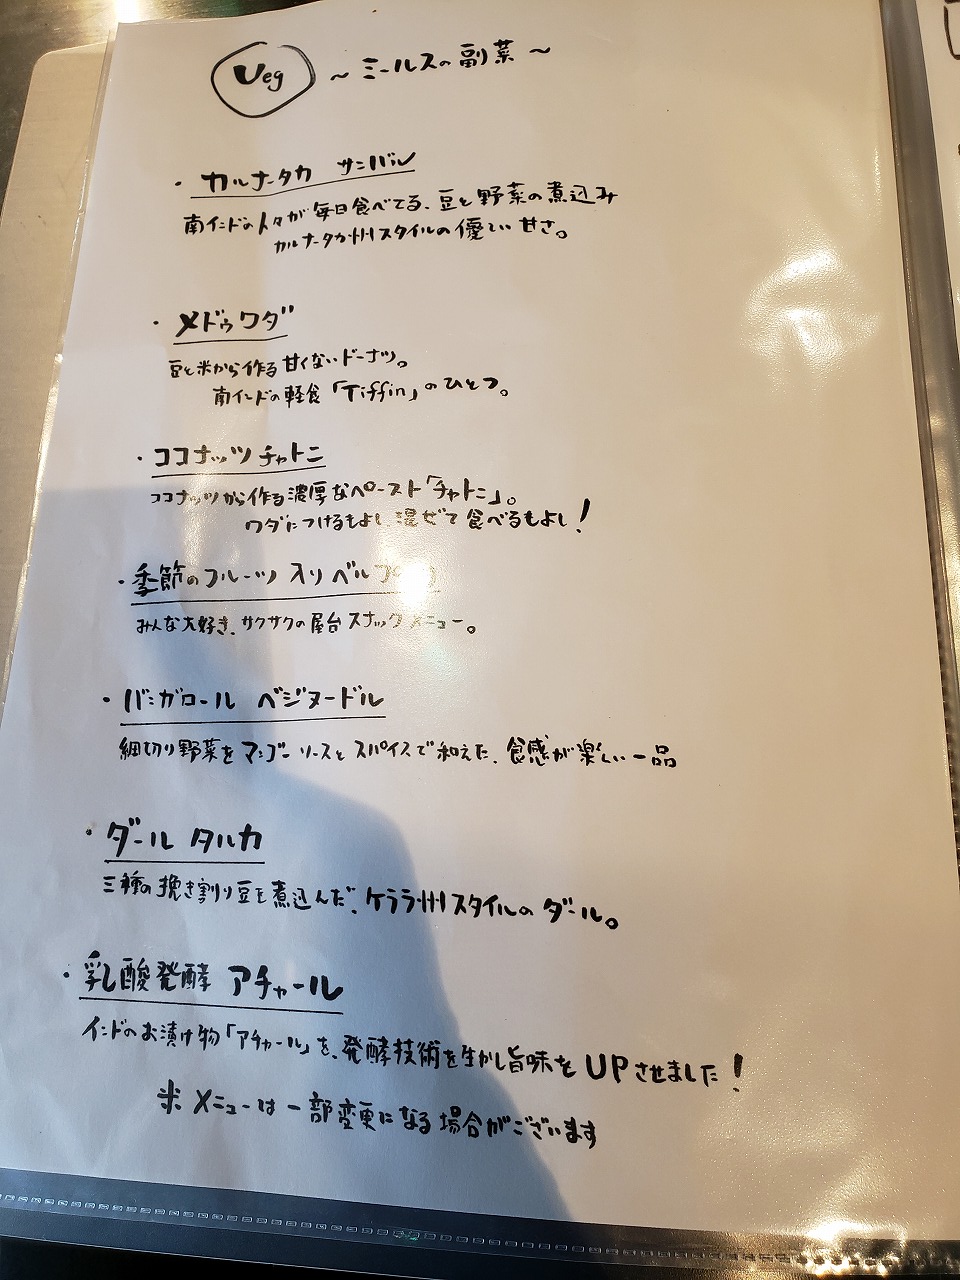 Veg ~ミールスの副菜~
・カルナータカ サンバル
南インドの人々が毎日食べてる、豆と野菜の煮込み
カルナータカ州スタイルの優しい甘さ。
・メドゥワダ
豆と米から作る甘くないドーナツ。
南インドの軽食「Tiffin」のひとつ。
・ココナッツチャトニ
ココナッツから作る濃厚なペースト「チャトニ」。
ワダにつけるもよし 混ぜて食べるもよし!
・季節のフルーツ入りベルプ
みんな大好き、サクサクの屋台スナックメニュー。
・バンガロール ベジヌードル
細切り野菜をマンゴーソースとスパイスで和えた、食感が楽しい一品
・ダール タルカ
三種の挽き割り豆を煮込んだ、ケララ州スタイルのダール。
・乳酸発酵 アチャール
インドのお漬け物「アチャール」を、発酵技術を生かし旨味をUPさせました!
※ メニューは一部変更になる場合がございます